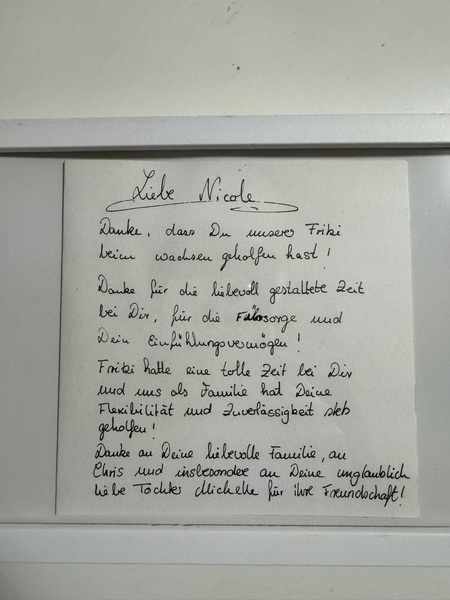 Liebe Nicole
Danke, dass Du unserer Friki
beim wachsen geholfen hast!
Danke für die liebevoll gestaltete Zeit
bei Dir, für die Fürsorge und
Dein Einfühlungsvermögen!
Friki hatte eine tolle Zeit bei Dir
und uns als Familie hat Deine
Flexibilität und Zuverlässigkeit stets
geholfen!
Danke an Deine liebevolle Familie, an
Chris und insbesondere an Deine unglaublich
liebe Tochter Michelle für ihre Freundschaft!